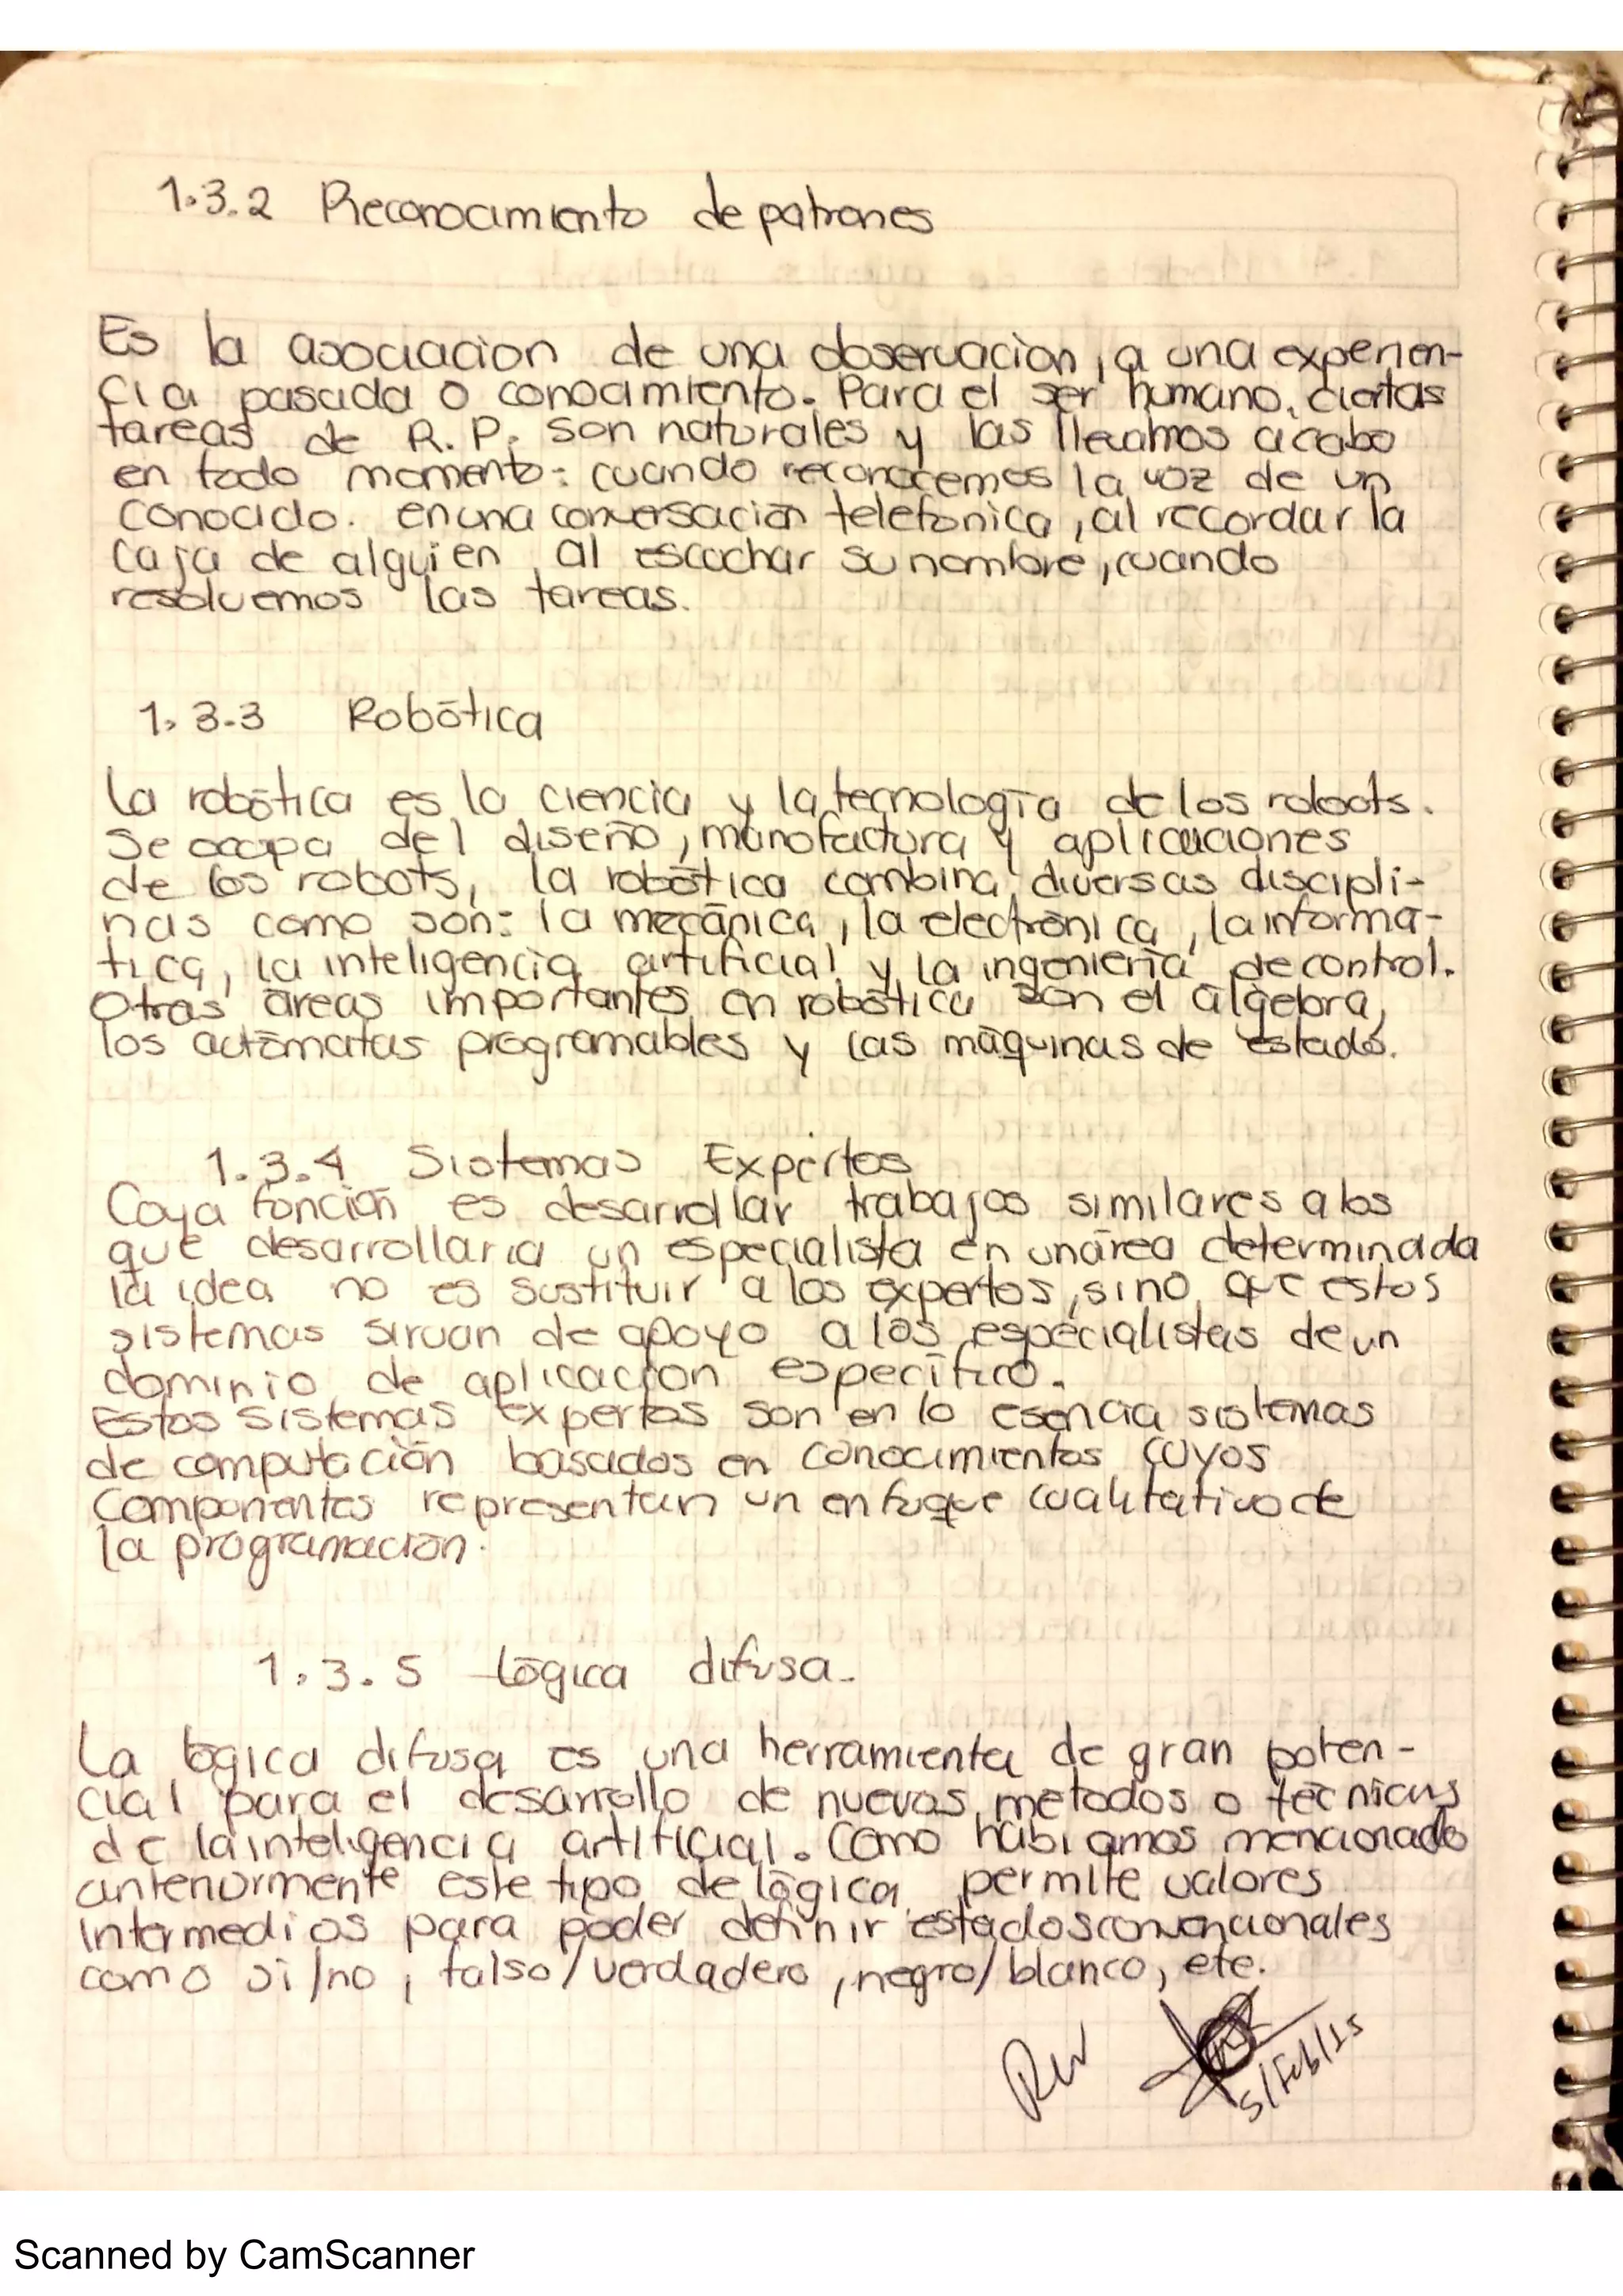 1.3.2 Reconocimiento de patrones
Es la asociacion de una observacion, a una experien-
cia pasada o conocimiento. Para el ser humano, ciertas
tareas de R.P. son naturales y las llevamos acabo
en todo momento: cuando reconocemos la voz de un
conocido. en una conversación telefonica, al recordar la
caja de alguien al escuchar su nombre, cuando
resolvemos las tareas.
1.3.3 Robótica
La robótica es la ciencia y la tecnología de los robots.
Se ocupa del diseño, manofactura y aplicaciones
de los robots, la robótica combina diversas discipli-
nas como son: la mecánica, la electrónica, la informa-
tica, la inteligencia artificial y la ingeniería de control.
Otras áreas importantes en robótica son el álgebra,
los autómatas programables y las máquinas de estados.
1.3.4 Sistemas Expertos
Cuya función es desarrollar trabajos similares a los
que desarrollaria un especialista en unárea determinada
la idea no es sustituir a los expertos, sino que estos
sistemas sirvan de apoyo a los especialistas de un
dominio de aplicacion específico.
Estos sistemas expertos son en lo esencia sistemas
de computación basados en conocimientos cuyos
componentes representan un enfoque cualitativo de
la programación.
1.3.5 Lógica difusa.
La lógica difusa es una herramienta de gran poten-
cial para el desarrollo de nuevos metodos o técnicas
de la inteligencia artificial. Como habiamos mencionado
anteriormente este tipo de lógica permite valores
intermedios para poder definir estados convencionales
como si/no, falso/verdadero, negro/blanco, etc.
5/Feb/15
Scanned by CamScanner